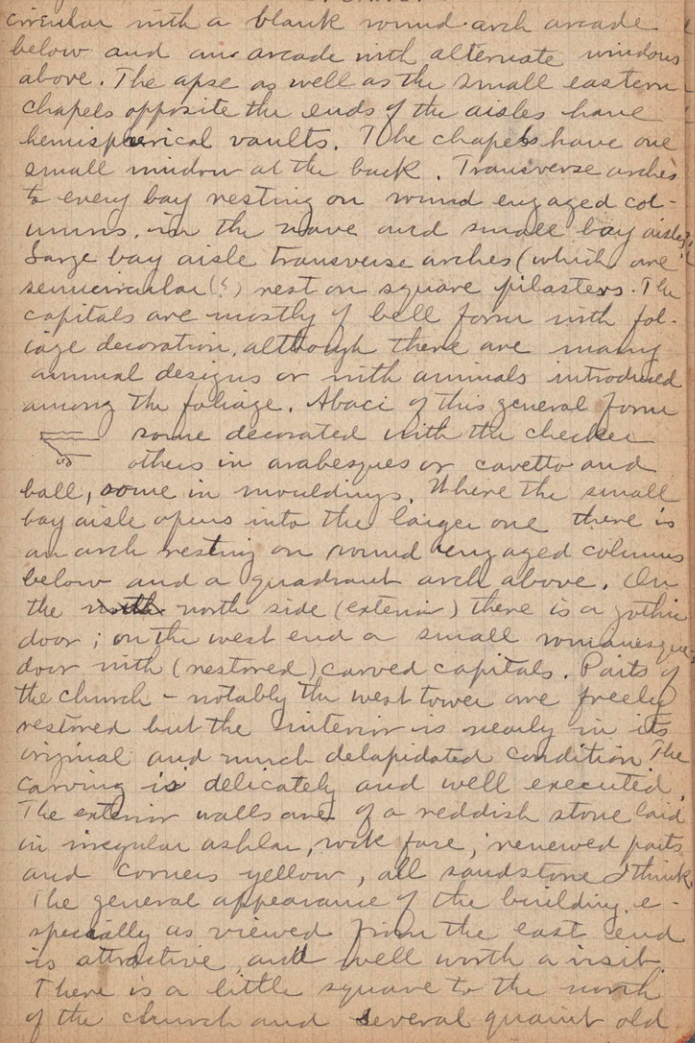 circular with a blank round arch arcade
below and an arcade with alternate windows
above. The apse as well as the small eastern
chapels opposite the ends of the aisles have
hemispherical vaults. The chapels have one
small window at the back. Transverse arches
to every bay resting on round engaged col-
umns, in the nave and small bay aisles;
Large bay aisle transverse arches (which are
semicircular (?) rest on square pilasters. The
capitals are mostly of bell form with fol-
iage decoration, although there are many
animal designs or with animals introduced
among the foliage. Abaci of this general form
some decorated with the checker
others in arabesques or cavetto and
ball, some in mouldings. Where the small
bay aisle opens into the larger one there is
an arch resting on round engaged columns
below and a quadrant arch above. On
the north side (exterior) there is a gothic
door; on the west end a small romanesque
door with (restored) carved capitals. Parts of
the church - notably the west tower are freely
restored but the interior is nearly in its
original and much delapidated condition. The
carving is delicately and well executed.
The exterior walls are of a reddish stone laid
in irregular ashlar, rock face; renewed parts
and corners yellow, all sandstone I think.
The general appearance of the building, e-
specially as viewed from the east end
is attractive and well worth a visit.
There is a little square to the north
of the church and several quaint old